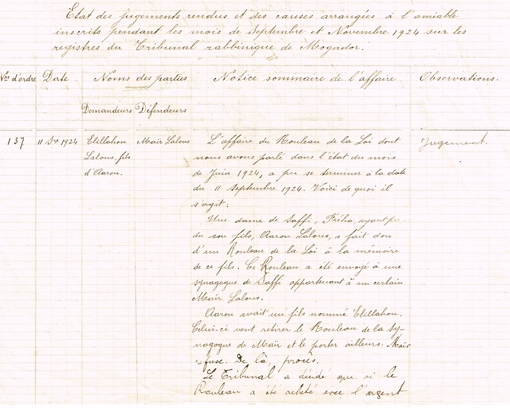 Etat des jugements rendus et des causes arrangées à l'amiable
inscrits pendant les mois de Septembre et Novembre 1924 sur les
registres du Tribunal rabbinique de Mogador.
Nos d'ordre Date Noms des parties Notice sommaire de l'affaire. Observations.
Demandeurs Défendeurs
137 11 Sre 1924 Elillahou Meair Lalous L'affaire du Rouleau de la Loi dont Jugement.
Lalous, fils nous avons parlé dans l'état du mois
d'Aaron. de Juin 1924, a pu se terminer à la date
du 11 Septembre 1924. Voici de quoi il
s'agit:
Une dame de Saffi, Fréha, ayant perdu
son fils, Aaron Lalous, a fait don
d'un Rouleau de la Loi à la mémoire
de ce fils. Ce Rouleau a été envoyé à une
synagogue de Saffi appartenant à un certain
Meair Lalous.
Aaron avait un fils nommé Elillahou.
Celui-ci veut retirer le Rouleau de la sy-
nagogue de Meair et le porter ailleurs. Meair
refuse. De là, procès.
Le Tribunal a décidé que si le
Rouleau a été acheté avec l'argent